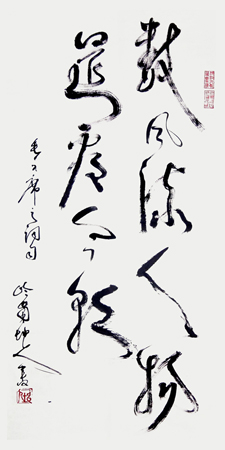 数风流人物
还看今朝
毛主席之词句